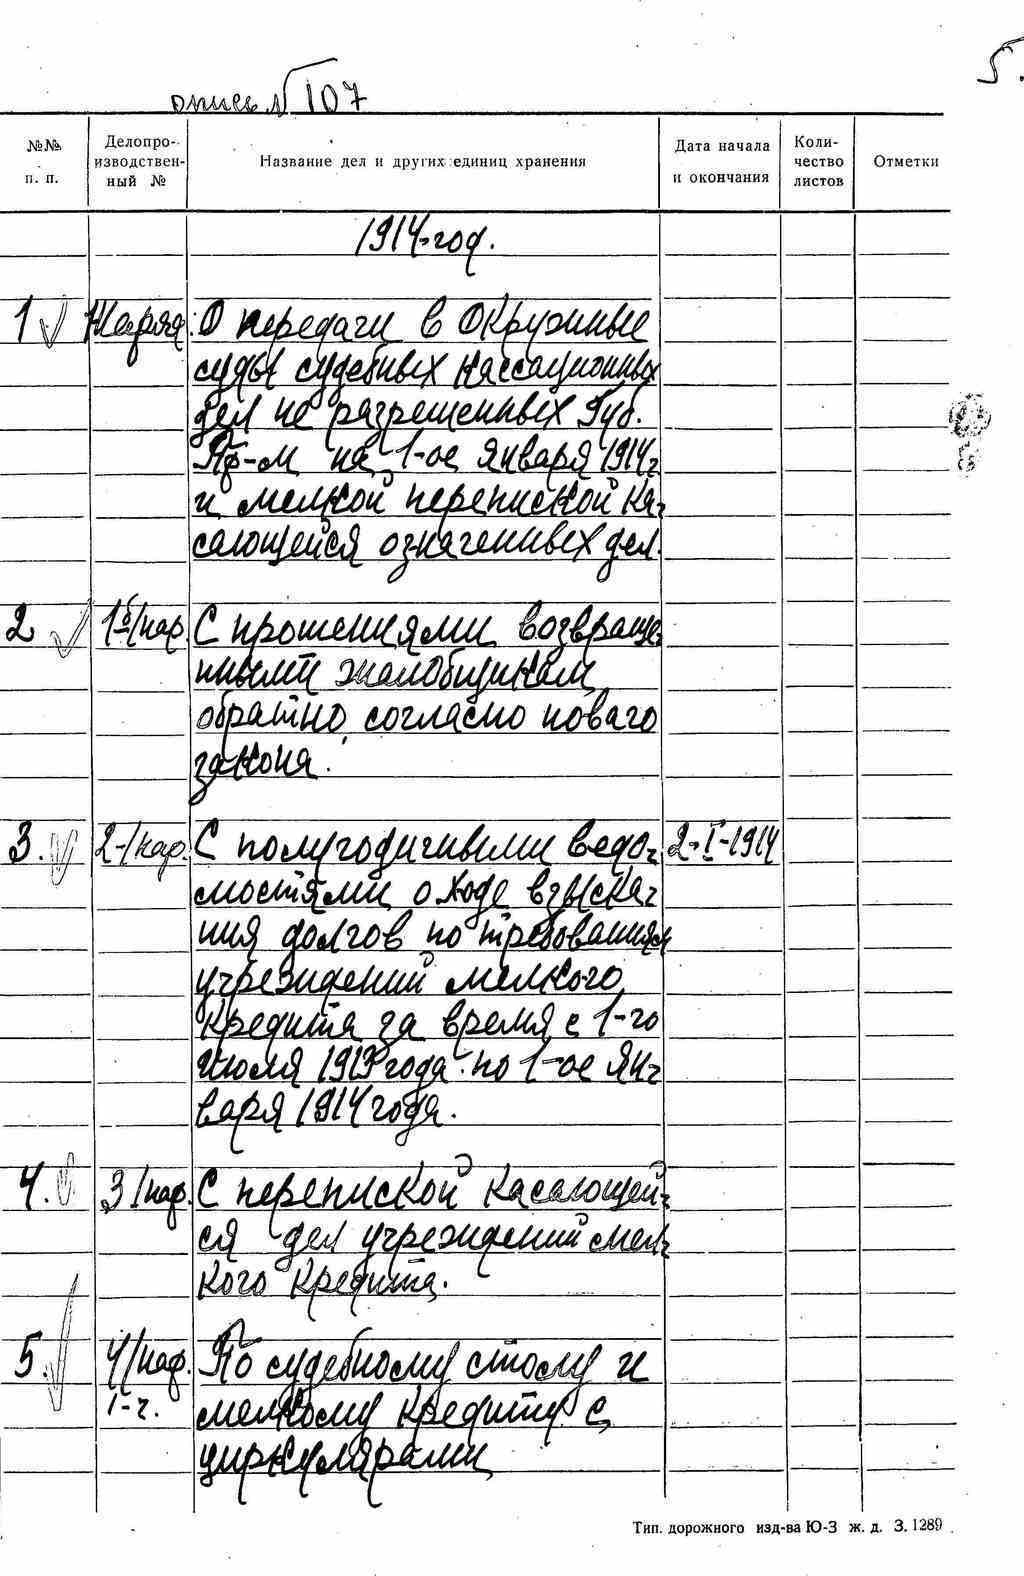 5.
опись № 107
№№ п. п.
Делопро- изводствен- ный №
Название дел и других единиц хранения
Дата начала и окончания
Коли- чество листов
Отметки
1914-год.
1 Наряд. О передачи в Окружные
суды судебных кассационных
дел не разрешенных Губ.
Пр-м на 1-ое Января 1914 г
и мелкой перепиской ка-
сающейся означенных дел.
2 1б/нар. С прошениями возвраще-
нными жалобщикам
обратно, согласно новаго
закона.
3. 2-/нар. С полугодичными ведо- 2-I-1914
мостями о ходе взыска-
ния долгов по требованиям
учреждений мелкого
кредита за время с 1-го
Июля 1913 года по 1-ое Ян-
варя 1914 года.
4. 3/нар. С перепиской касающей-
ся дел учреждений мел-
кого кредита.
5. 4/нар. По судебному столу и
1-г. мелкому кредиту с
циркулярами
Тип. дорожного изд-ва Ю-З ж. д. З. 1289